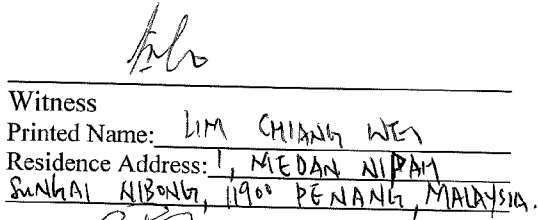 Witness
Printed Name: LIM CHIANG WEI
Residence Address: 1, MEDAN NIPAH
SUNGAI NIBONG, 11900 PENANG, MALAYSIA.